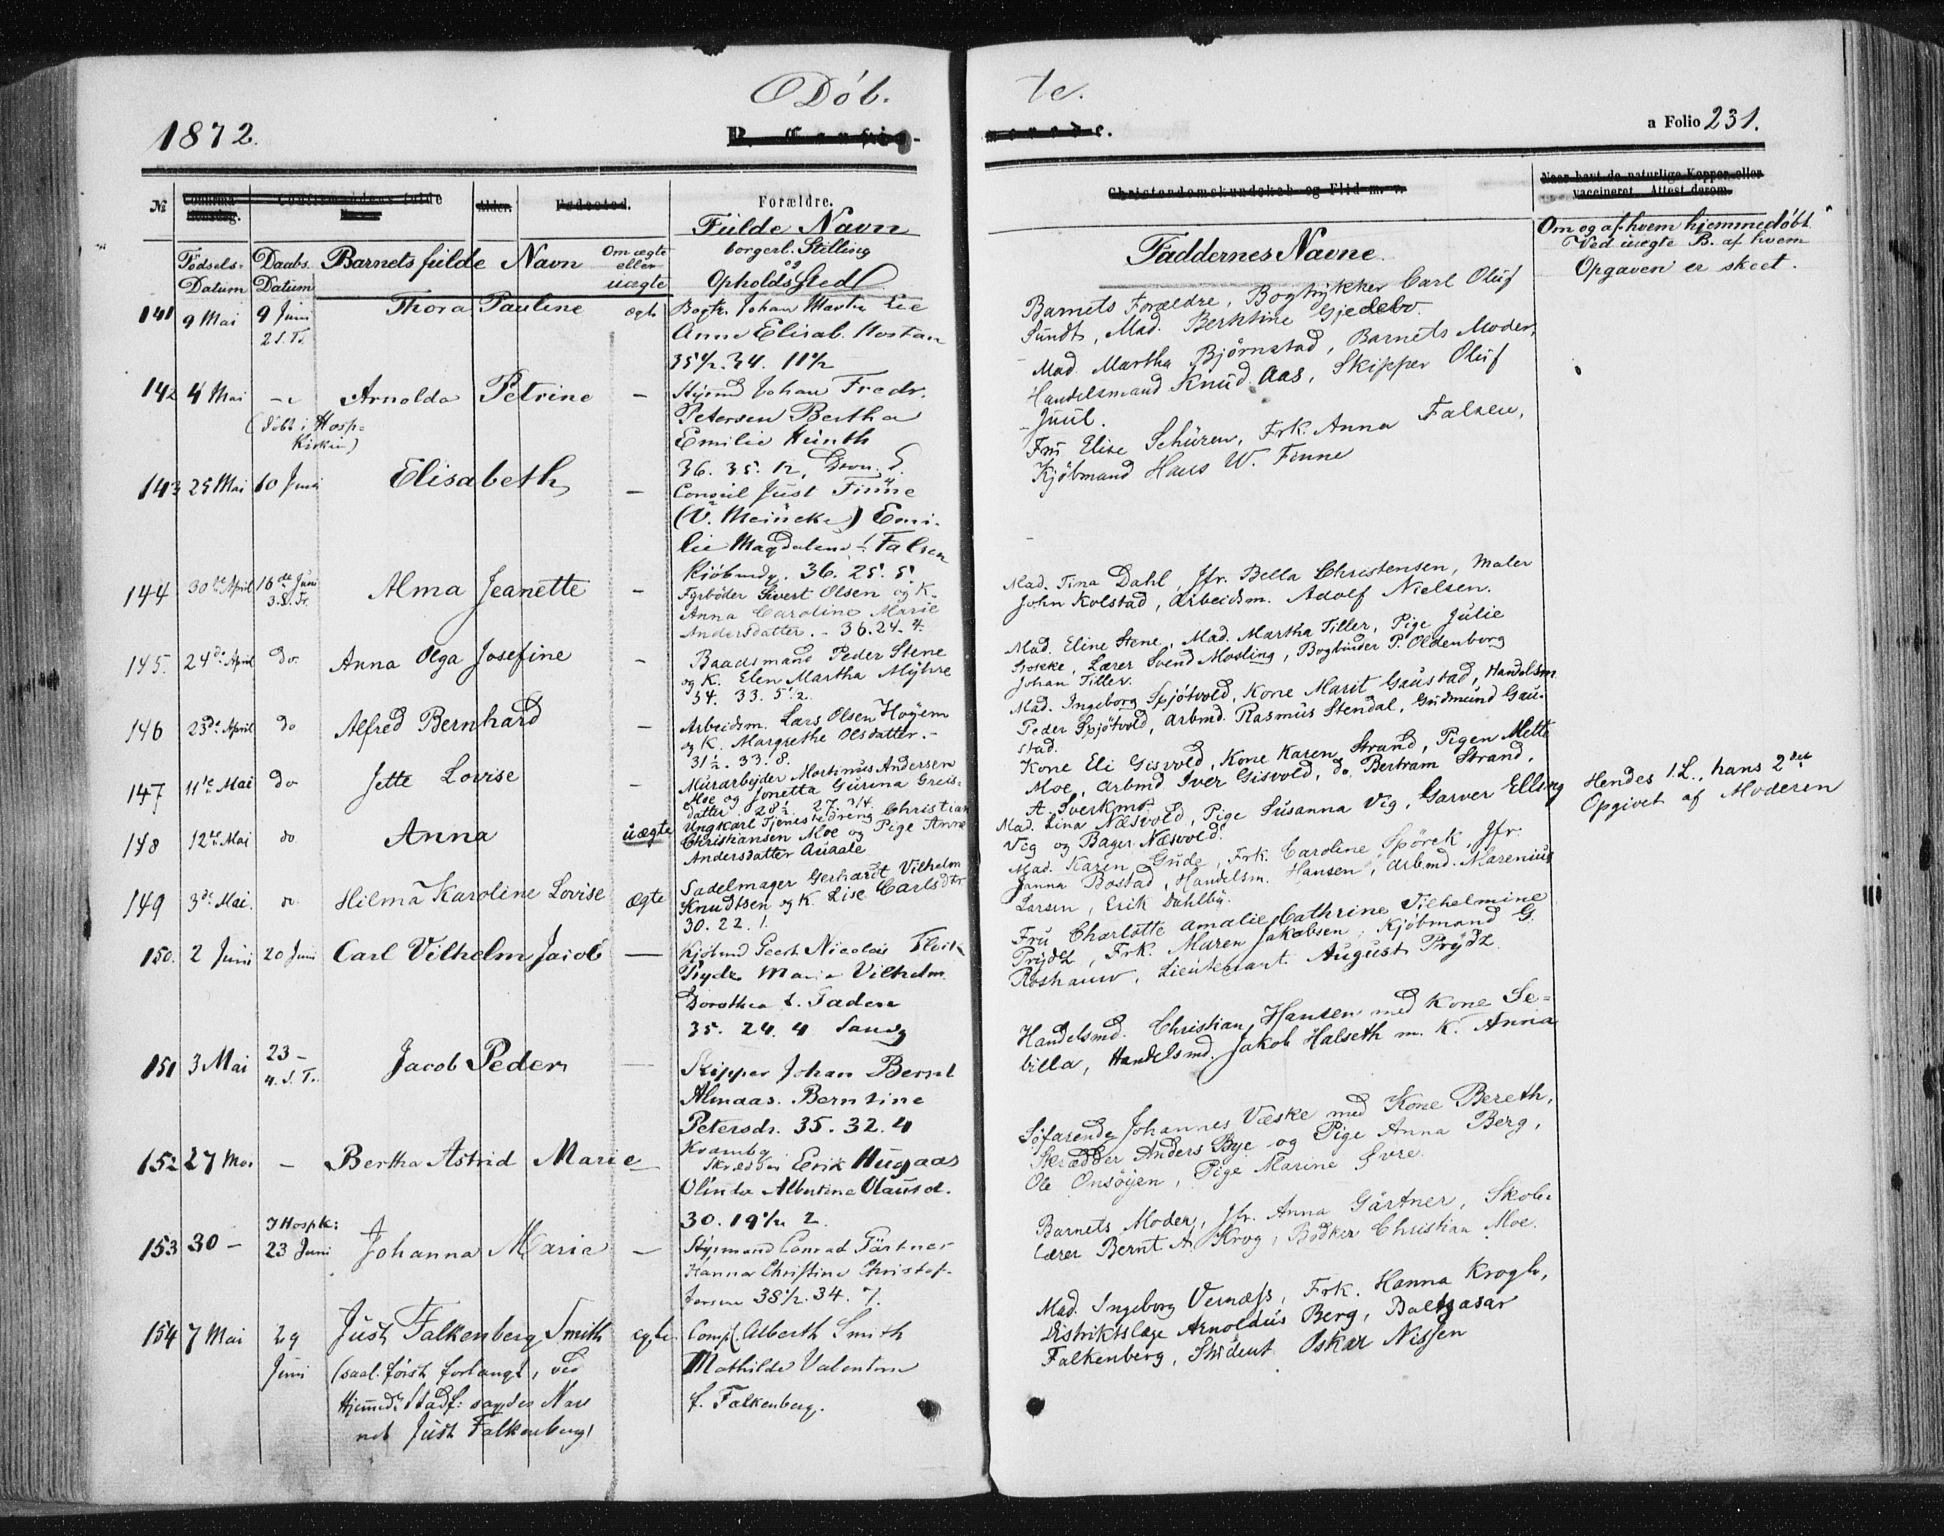 1872.
Döb.
te.
a Folio 231.
№
Forældre.
Fulde Navn
borgerl. Stilling
og
Opholdssted
Födsels-
Datum
Daabs
Datum
Barnets fulde Navn
Om ægte
eller
uægte
Faddernes Navne.
Om og af hvem hjemmedöbt
Ved uægte B. af hvem
Opgaven er skeet.
141
9 Mai
9 Juni
2 S. Tr.
Thora Pauline
ægte
Bogtr. Johan Martin Lie
Anne Elisab. Hostan
35½. 34. 11½
Barnets Forældre, Bogtrykker Carl Oluf
Sundt, Mad. Berktine Gjedebo.
142
4 Mai
(döbt i Hosp-
Kirken)
Arnolda Petrine
—
Styrmd Johan Fredr.
Petersen Bertha
Emilie Heinth
36. 35. 12.
Mad. Martha Björnstad, Barnets Moder,
Handelsmand Knud Aas, Skipper Oluf
Juul.
143
25 Mai
10 Juni
Elisabeth
—
Consul Just Finne
(V. Meincke) Emi-
lie Magdalene f. Falsen
Kjöbmdg. 36. 25. 5.
Fru Elise Schüren, Frk. Anna Falsen,
Kjöbmand Hans W. Finne
144
30te April
16de Juni
3. S. Tr.
Alma Jeanette
—
Fyrböder Sivert Olsen og K.
Anna Caroline Marie
Andersdatter. - 36. 24. 4.
Mad. Tina Dahl, Jfr. Bella Christensen, Maler
John Kolstad, Arbeidsm. Adolf Nielsen.
145.
24de April
do.
Anna Olga Josefine
—
Baadsmand Peder Stene
og K. Elen Martha Myhre
34. 33. 5½.
Mad. Eline Stene, Mad. Martha Tiller, Pige Julie
Stokke, Lærer Svend Mosling, Bogbinder P. Oldenborg
Johan Tiller.
146
23de April
do
Alfred Bernhard
—
Arbeidsm. Lars Olsen Höyem
og K. Margrethe Olsdatter. -
31½. 33. 8.
Mad. Ingeborg Spjötvold, Kone Marit Gaustad, Handelsm
Peder Spjötvold, Arbmd. Rasmus Stendal, Gudmund Gau-
stad.
147
11te Mai
do
Jette Lovise
—
Murarbejder Mortinus Andersen
Moe og Jonetta Gurina Greis-
datter. 28½. 27. 3/4.
Kone Eli Gisvold, Kone Karen Strand, Pigen Mette
Moe, Arbmd Iver Gisvold, do. Bertram Strand,
A. Sverkmo.
148
12te Mai
do
Anna
uægte
Ungkarl Tjenestedreng Christian
Christiansen Moe og Pige Anne
Andersdatter Auaale
Mad. Lina Næsvold, Pige Susanna Vig, Garver Elling
Vig og Bager Næsvold.
Hendes 1. L., hans 2det
Opgivet af Moderen
149
3de Mai.
do
Hilma Karoline Lovise
Ægte
Sadelmager Gerhardt Vilhelm
Knudtsen og K. Lise Carlsdtr
30. 22. 1.
Mad. Karen Gude, Frk. Caroline Spörck, Jfr.
Janna Bostad, Handelsm. Hansen, Arbmd. Marenius
Larsen, Erik Dahlby.
150.
2 Juni
20 Juni
Carl Vilhelm Jacob
—
Kjöbmd Geert Nicolai Flock
Prydz Marie Vilhelm.
Dorothea f. Faden
35. 24. 4
Fru Charlotte Amalie Cathrine Vilhelmine
Prydtz, Frk. Maren Jakobsen, Kjöbmand G.
Roshauw, Lieutenant August Prydz.
151
3 Mai
23 —
4. S. Tr.
Jacob Peder
—
Skipper Johan Bernt
Almaas. Berntine
Petersdr. 35. 32. 4
Handelsmd. Christian Hansen med Kone Se-
billa, Handelsmd. Jakob Halseth m. K. Anna
152
27 Mai
—
Bertha Astrid Marie
—
Skrædder Erik Hugaas
Olinda Albertine Olausd.
30. 19½ 2.
Söfarende Johannes Væske med Kone Bereth,
Skrædder Anders Bye og Pige Anna Berg,
Ole Onsöyen, Pige Marine Svre.
153
30 —
I Hospk:
23 Juni
Johanna Marie
—
Styrmand Conrad Gärtner
Hanna Christine Christof-
fersen 38½. 34. 7.
Barnets Moder, Jfr. Anna Gärtner, Skole-
lærer Bernt A. Krog, Bödker Christian Moe.
154
7 Mai
29
Juni
Just Falkenberg Smith
(saal. först forlangt, ved
Hjemmed: Stadf: sagdes Nav
net Just Falkenberg)
ægte
Compl. Alberth Smith
Mathilde Valentine
f. Falkenberg.
Mad. Ingeborg Vernæss, Frk. Hanna Krogh,
Distriktslæge Arnoldus Berg, Baltzasar
Falkenberg, Student Oskar Nissen